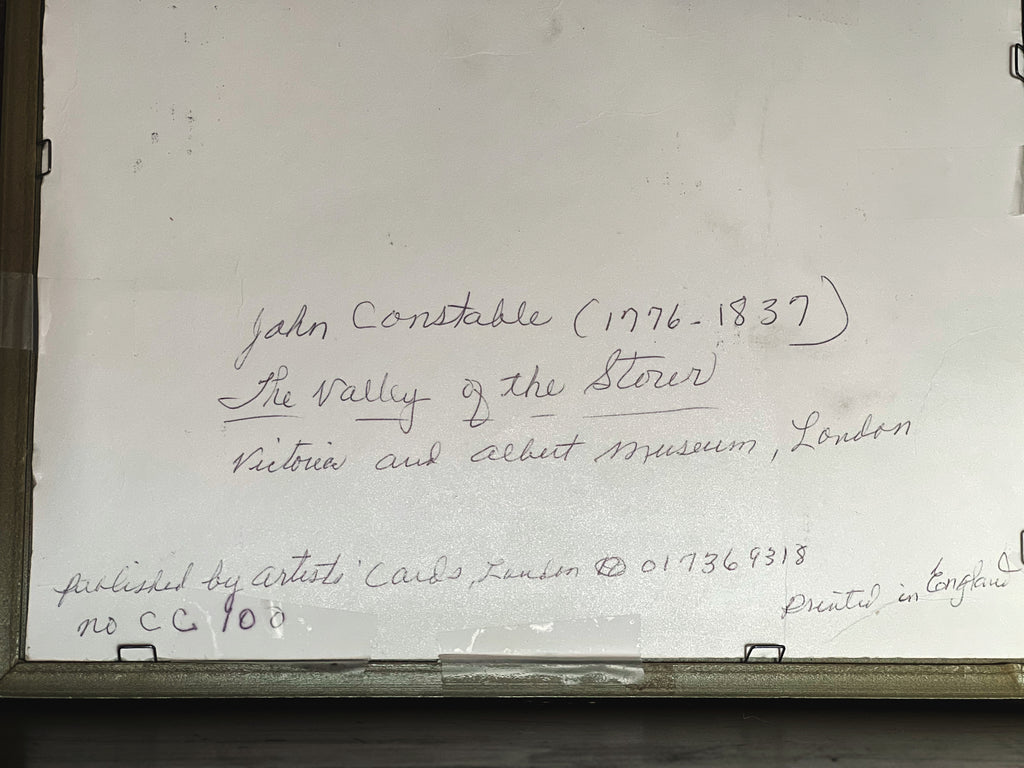 John Constable (1776-1837)
The Valley of the Stour
Victoria and Albert Museum, London
published by Artists' Cards, London 017369318
Printed in England
no CC 100